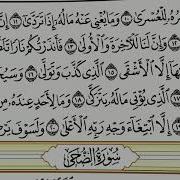 ـرُهُۥ لِلْعُسْرَىٰ ١٠ وَمَا يُغْنِى عَنْهُ مَالُهُۥٓ إِذَا تَرَدَّىٰٓ ١١
١٢ وَإِنَّ لَنَا لَلْـَٔاخِرَةَ وَٱلْأُولَىٰ ١٣ فَأَنذَرْتُكُمْ نَا
ـهَآ إِلَّا ٱلْأَشْقَى ١٥ ٱلَّذِى كَذَّبَ وَتَوَلَّىٰ ١٦ وَسَيُجَـ
١٧ ٱلَّذِى يُؤْتِى مَالَهُۥ يَتَزَكَّىٰ ١٨ وَمَا لِأَحَدٍ عِندَهُۥ مِن
إِلَّا ٱبْتِغَآءَ وَجْهِ رَبِّهِ ٱلْأَعْلَىٰ ٢٠ وَلَسَوْفَ يَرْضَـ
سُورَةُ الضُّحَى